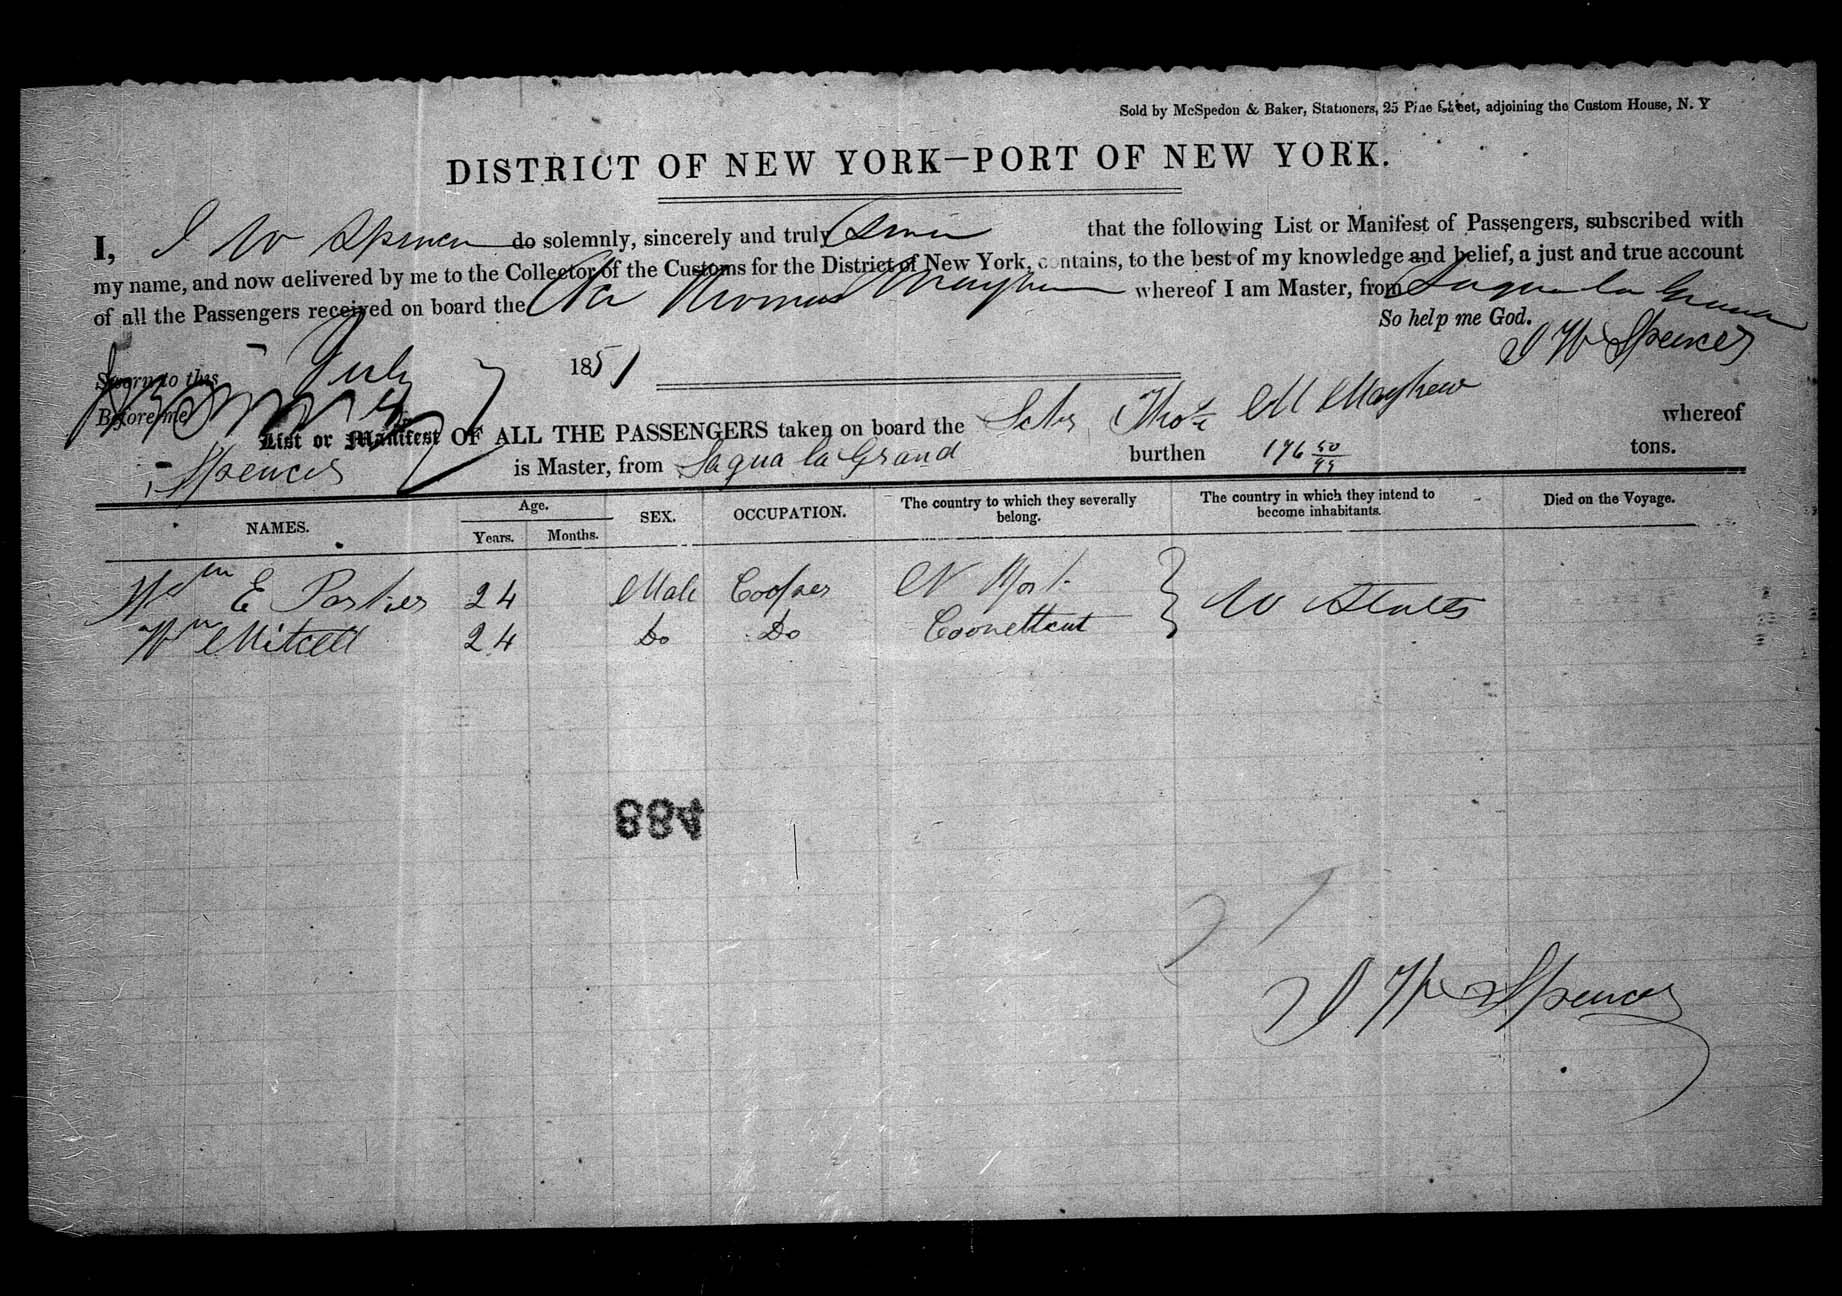 Sold by McSpedon & Baker, Stationers, 25 Pine Street, adjoining the Custom House, N. Y
DISTRICT OF NEW YORK—PORT OF NEW YORK.
I, I W Spencer do solemnly, sincerely and truly swear that the following List or Manifest of Passengers, subscribed with
my name, and now delivered by me to the Collector of the Customs for the District of New York, contains, to the best of my knowledge and belief, a just and true account
of all the Passengers received on board the Thomas Mayhew whereof I am Master, from Sagua la Grand
So help me God.
Sworn to this July 1851
I W Spencer
Before me
List or Manifest OF ALL THE PASSENGERS taken on board the Schr Thos M Mayhew whereof
Spencer is Master, from Sagua la Grand burthen 196 50/95 tons.
NAMES. Age. Years. Months. SEX. OCCUPATION. The country to which they severally belong. The country in which they intend to become inhabitants. Died on the Voyage.
Wm E Parker 24 Male Cooper N York } U States
Wm Mitcell 24 Do Do Coonetticut
884
I W Spencer